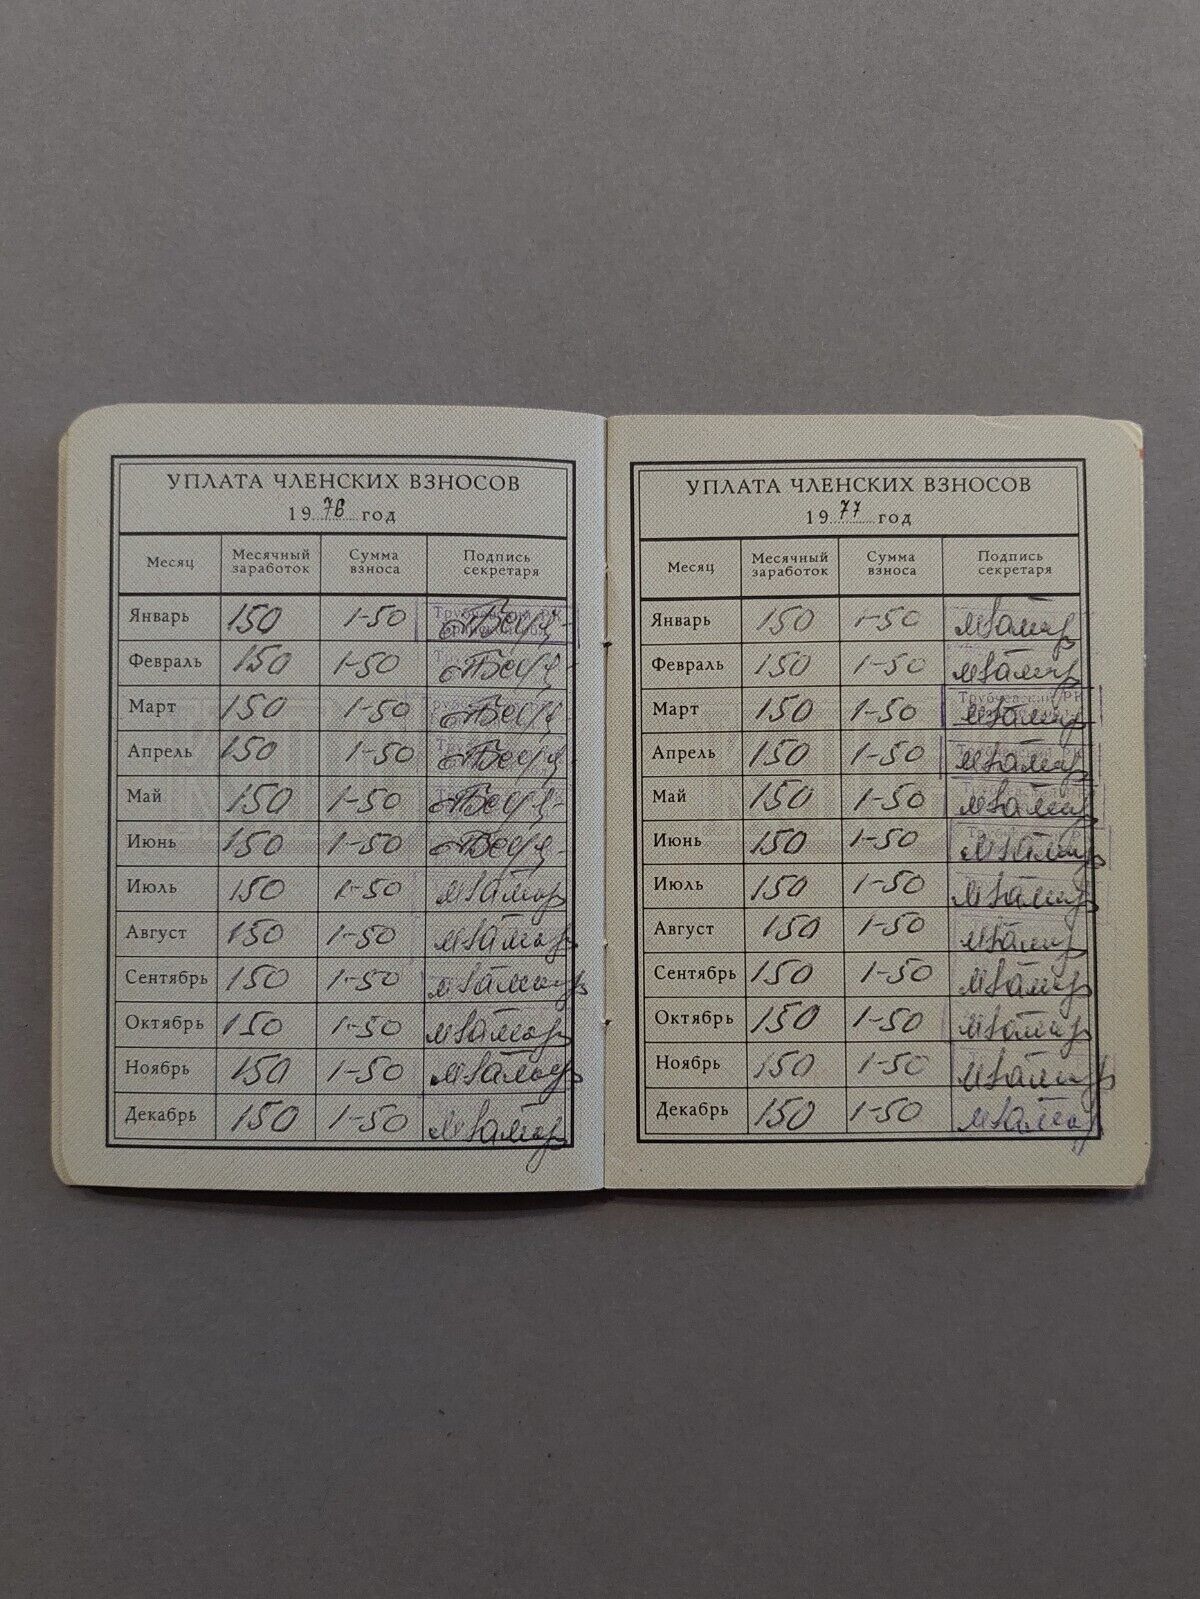 УПЛАТА ЧЛЕНСКИХ ВЗНОСОВ
1976 год
Месяц Месячный заработок Сумма взноса Подпись секретаря
Январь 150 1-50
Февраль 150 1-50
Март 150 1-50
Апрель 150 1-50
Май 150 1-50
Июнь 150 1-50
Июль 150 1-50
Август 150 1-50
Сентябрь 150 1-50
Октябрь 150 1-50
Ноябрь 150 1-50
Декабрь 150 1-50
УПЛАТА ЧЛЕНСКИХ ВЗНОСОВ
1977 год
Месяц Месячный заработок Сумма взноса Подпись секретаря
Январь 150 1-50
Февраль 150 1-50
Март 150 1-50 Трубчевский РК
Апрель 150 1-50
Май 150 1-50
Июнь 150 1-50
Июль 150 1-50
Август 150 1-50
Сентябрь 150 1-50
Октябрь 150 1-50
Ноябрь 150 1-50
Декабрь 150 1-50